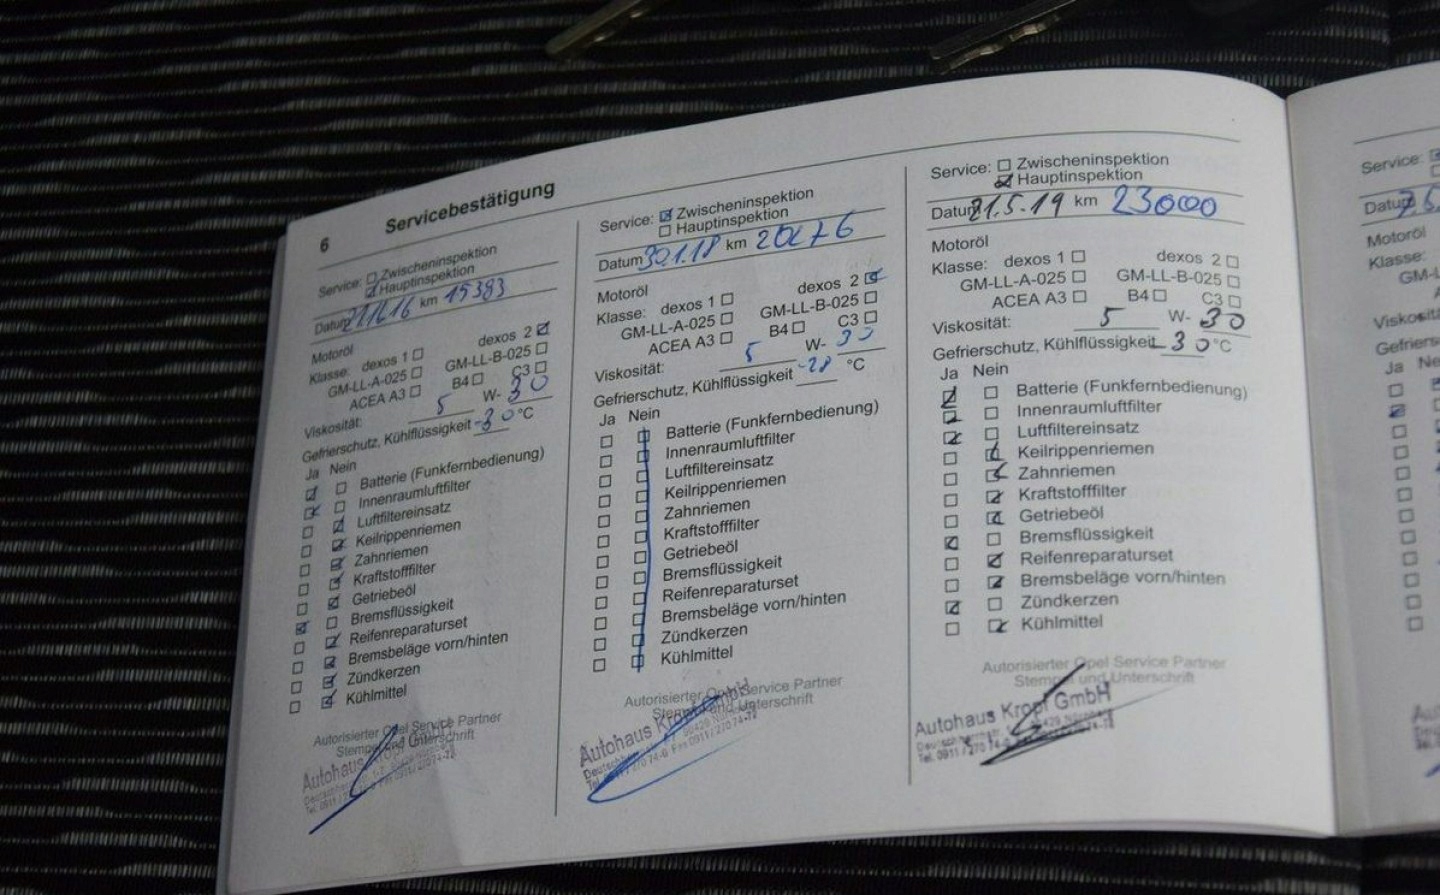 6
Servicebestätigung
Service: Zwischeninspektion
Hauptinspektion
Datum km 15383
Motoröl
Klasse: dexos 1 dexos 2
GM-LL-A-025 GM-LL-B-025
ACEA A3 B4 C3
Viskosität: 5 W- 30
Gefrierschutz, Kühlflüssigkeit -30 °C
Ja Nein
Batterie (Funkfernbedienung)
Innenraumluftfilter
Luftfiltereinsatz
Keilrippenriemen
Zahnriemen
Kraftstofffilter
Getriebeöl
Bremsflüssigkeit
Reifenreparaturset
Bremsbeläge vorn/hinten
Zündkerzen
Kühlmittel
Autorisierter Opel Service Partner
Stempel und Unterschrift
Autohaus
Service: Zwischeninspektion
Hauptinspektion
Datum 30.1.18 km 20476
Motoröl
Klasse: dexos 1 dexos 2
GM-LL-A-025 GM-LL-B-025
ACEA A3 B4 C3
Viskosität: 5 W- 30
Gefrierschutz, Kühlflüssigkeit -28 °C
Ja Nein
Batterie (Funkfernbedienung)
Innenraumluftfilter
Luftfiltereinsatz
Keilrippenriemen
Zahnriemen
Kraftstofffilter
Getriebeöl
Bremsflüssigkeit
Reifenreparaturset
Bremsbeläge vorn/hinten
Zündkerzen
Kühlmittel
Autorisierter Opel Service Partner
Stempel und Unterschrift
Autohaus Kropf GmbH
Service: Zwischeninspektion
Hauptinspektion
Datum 21.5.19 km 23000
Motoröl
Klasse: dexos 1 dexos 2
GM-LL-A-025 GM-LL-B-025
ACEA A3 B4 C3
Viskosität: 5 W- 30
Gefrierschutz, Kühlflüssigkeit -30 °C
Ja Nein
Batterie (Funkfernbedienung)
Innenraumluftfilter
Luftfiltereinsatz
Keilrippenriemen
Zahnriemen
Kraftstofffilter
Getriebeöl
Bremsflüssigkeit
Reifenreparaturset
Bremsbeläge vorn/hinten
Zündkerzen
Kühlmittel
Autorisierter Opel Service Partner
Stempel und Unterschrift
Autohaus Kropf GmbH
Service:
Datum
Motoröl
Klasse:
Ja Nein